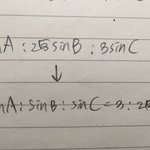 nA : 2√3 sinB : 3sinC
↓
nA : sinB : sinC = 3 : 2